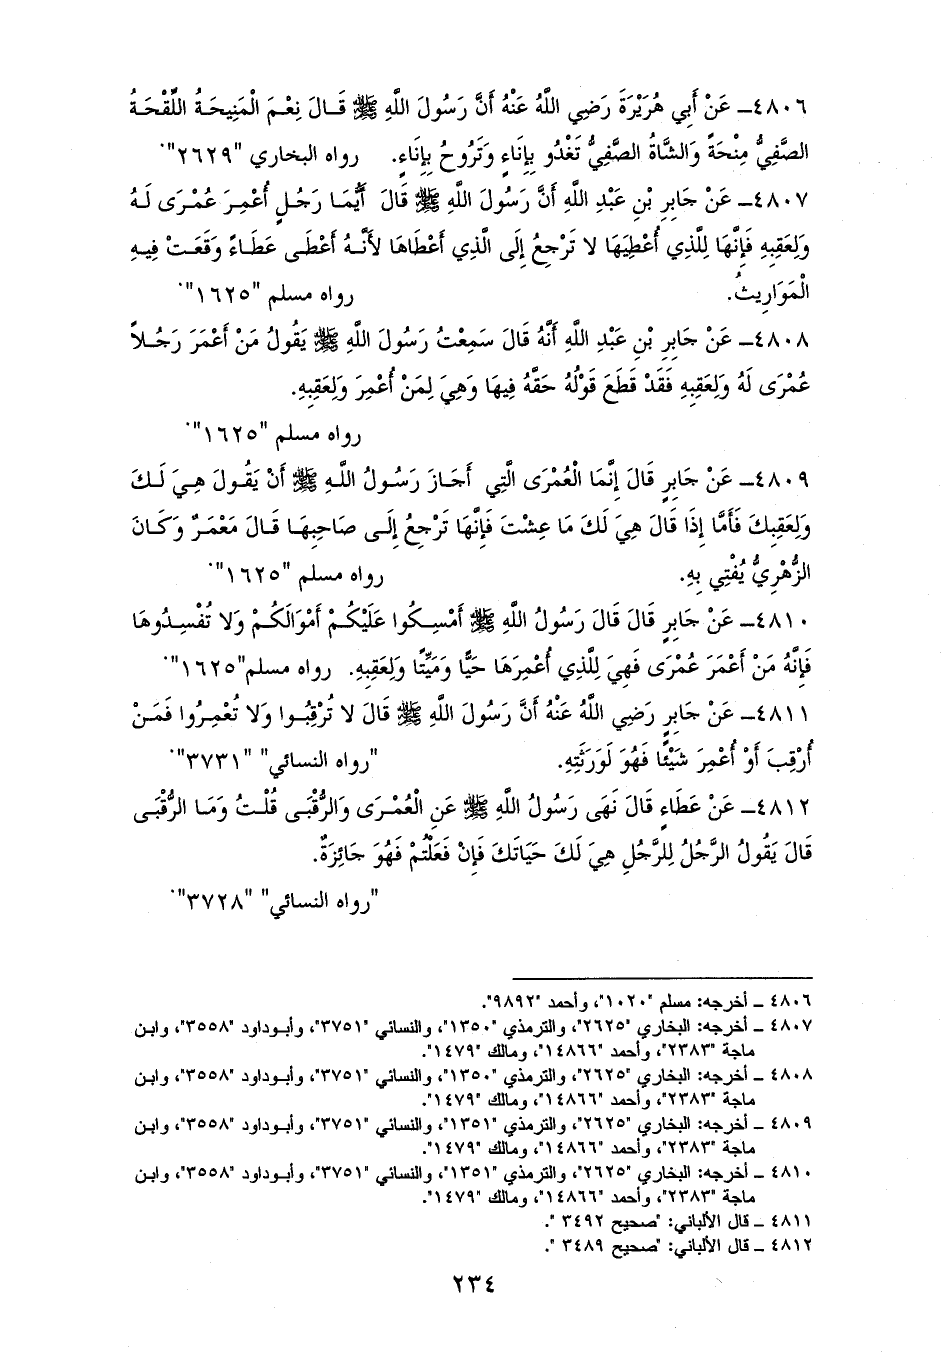 ٤٨٠٦ـ عَنْ أَبِي هُرَيْرَةَ رَضِي اللَّهُ عَنْهُ أَنَّ رَسُولَ اللَّهِ ﷺ قَالَ نِعْمَ الْمَنِيحَةُ اللِّقْحَةُ
الصَّفِيُّ مِنْحَةً وَالشَّاةُ الصَّفِيُّ تَغْدُو بِإِنَاءٍ وَتَرُوحُ بِإِنَاءٍ. رواه البخاري "٢٦٢٩".
٤٨٠٧ـ عَنْ جَابِرِ بْنِ عَبْدِ اللَّهِ أَنَّ رَسُولَ اللَّهِ ﷺ قَالَ أَيُّمَا رَجُلٍ أُعْمِرَ عُمْرَى لَهُ
وَلِعَقِبِهِ فَإِنَّهَا لِلَّذِي أُعْطِيَهَا لا تَرْجِعُ إِلَى الَّذِي أَعْطَاهَا لأَنَّهُ أَعْطَى عَطَاءً وَقَعَتْ فِيهِ
الْمَوَارِيثُ. رواه مسلم "١٦٢٥".
٤٨٠٨ـ عَنْ جَابِرِ بْنِ عَبْدِ اللَّهِ أَنَّهُ قَالَ سَمِعْتُ رَسُولَ اللَّهِ ﷺ يَقُولُ مَنْ أَعْمَرَ رَجُلاً
عُمْرَى لَهُ وَلِعَقِبِهِ فَقَدْ قَطَعَ قَوْلُهُ حَقَّهُ فِيهَا وَهِيَ لِمَنْ أُعْمِرَ وَلِعَقِبِهِ.
رواه مسلم "١٦٢٥".
٤٨٠٩ـ عَنْ جَابِرٍ قَالَ إِنَّمَا الْعُمْرَى الَّتِي أَجَازَ رَسُولُ اللَّهِ ﷺ أَنْ يَقُولَ هِيَ لَكَ
وَلِعَقِبِكَ فَأَمَّا إِذَا قَالَ هِيَ لَكَ مَا عِشْتَ فَإِنَّهَا تَرْجِعُ إِلَى صَاحِبِهَا قَالَ مَعْمَرٌ وَكَانَ
الزُّهْرِيُّ يُفْتِي بِهِ. رواه مسلم "١٦٢٥".
٤٨١٠ـ عَنْ جَابِرٍ قَالَ قَالَ رَسُولُ اللَّهِ ﷺ أَمْسِكُوا عَلَيْكُمْ أَمْوَالَكُمْ وَلا تُفْسِدُوهَا
فَإِنَّهُ مَنْ أَعْمَرَ عُمْرَى فَهِيَ لِلَّذِي أُعْمِرَهَا حَيًّا وَمَيِّتًا وَلِعَقِبِهِ. رواه مسلم"١٦٢٥".
٤٨١١ـ عَنْ جَابِرٍ رَضِي اللَّهُ عَنْهُ أَنَّ رَسُولَ اللَّهِ ﷺ قَالَ لا تُرْقِبُوا وَلا تُعْمِرُوا فَمَنْ
أُرْقِبَ أَوْ أُعْمِرَ شَيْئًا فَهُوَ لَوَرَثَتِهِ. "رواه النسائي" "٣٧٣١".
٤٨١٢ـ عَنْ عَطَاءٍ قَالَ نَهَى رَسُولُ اللَّهِ ﷺ عَنِ الْعُمْرَى وَالرُّقْبَى قُلْتُ وَمَا الرُّقْبَى
قَالَ يَقُولُ الرَّجُلُ لِلرَّجُلِ هِيَ لَكَ حَيَاتَكَ فَإِنْ فَعَلْتُمْ فَهُوَ جَائِزَةٌ.
"رواه النسائي" "٣٧٢٨".
٤٨٠٦ ـ أخرجه: مسلم "١٠٢٠"، وأحمد "٩٨٩٢".
٤٨٠٧ ـ أخرجه: البخاري "٢٦٢٥"، والترمذي "١٣٥٠"، والنسائي "٣٧٥١"، وأبوداود "٣٥٥٨"، وابن
ماجة "٢٣٨٣"، وأحمد "١٤٨٦٦"، ومالك "١٤٧٩".
٤٨٠٨ ـ أخرجه: البخاري "٢٦٢٥"، والترمذي "١٣٥٠"، والنسائي "٣٧٥١"، وأبوداود "٣٥٥٨"، وابن
ماجة "٢٣٨٣"، وأحمد "١٤٨٦٦"، ومالك "١٤٧٩".
٤٨٠٩ ـ أخرجه: البخاري "٢٦٢٥"، والترمذي "١٣٥١"، والنسائي "٣٧٥١"، وأبوداود "٣٥٥٨"، وابن
ماجة "٢٣٨٣"، وأحمد "١٤٨٦٦"، ومالك "١٤٧٩".
٤٨١٠ ـ أخرجه: البخاري "٢٦٢٥"، والترمذي "١٣٥١"، والنسائي "٣٧٥١"، وأبوداود "٣٥٥٨"، وابن
ماجة "٢٣٨٣"، وأحمد "١٤٨٦٦"، ومالك "١٤٧٩".
٤٨١١ ـ قال الألباني: "صحيح ٣٤٩٢ ".
٤٨١٢ ـ قال الألباني: "صحيح ٣٤٨٩ ".
٢٣٤